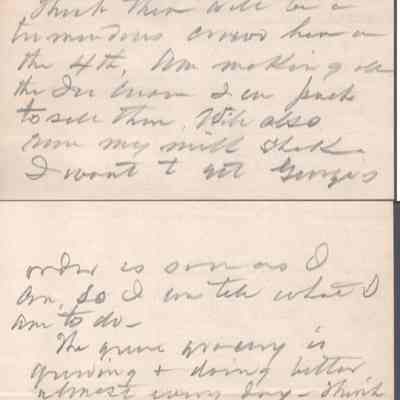 Think there will be a
tremendous crowd here on
the 4th, Am making all
the Ice Cream I can pack
to sell then. Will also
run my milk shake
I want to get George's
order as soon as I
can, so I can tell what I
am to do -
The green grocery is
growing + doing better
almost every day - think